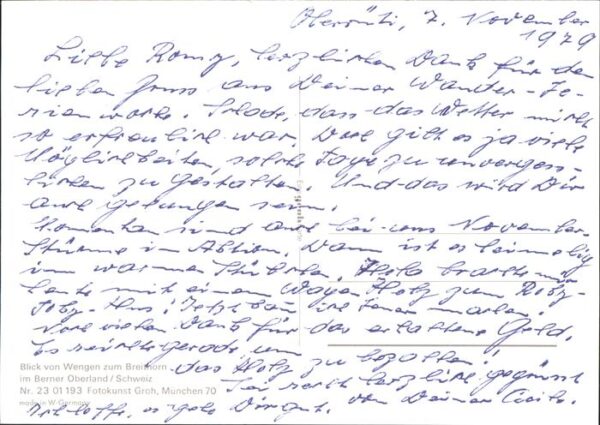 Oberrüti, 7. November
1979
Liebe Romy, herzlichen Dank für den
lieben Gruss aus Deiner Wander-Fe-
rienwoche. Schade, dass das Wetter nicht
so erfreulich war. Dort gibt es ja viele
Möglichkeiten, solche Tage zu unvergess-
lichen zu gestalten. Und das wird Dir
auch gelungen sein.
Momentan sind auch bei uns November-
Stürme in Aktion. Dann ist es heimelig
im warmen Stübchen. brachte mir
heute mit einem Wagen Holz zum
Hus! Jetzt kann ich Feuer machen.
Noch vielen Dank für das erhaltene Geld.
Es reichte gerade, um
das Holz zu bezahlen!
Sei recht herzlich gegrüsst
Ich hoffe, es gehe Dir gut. von Deiner Cécile.
Blick von Wengen zum Breithorn
im Berner Oberland / Schweiz
Nr. 23 01 193 Fotokunst Groh, München 70
made in W.-Germany